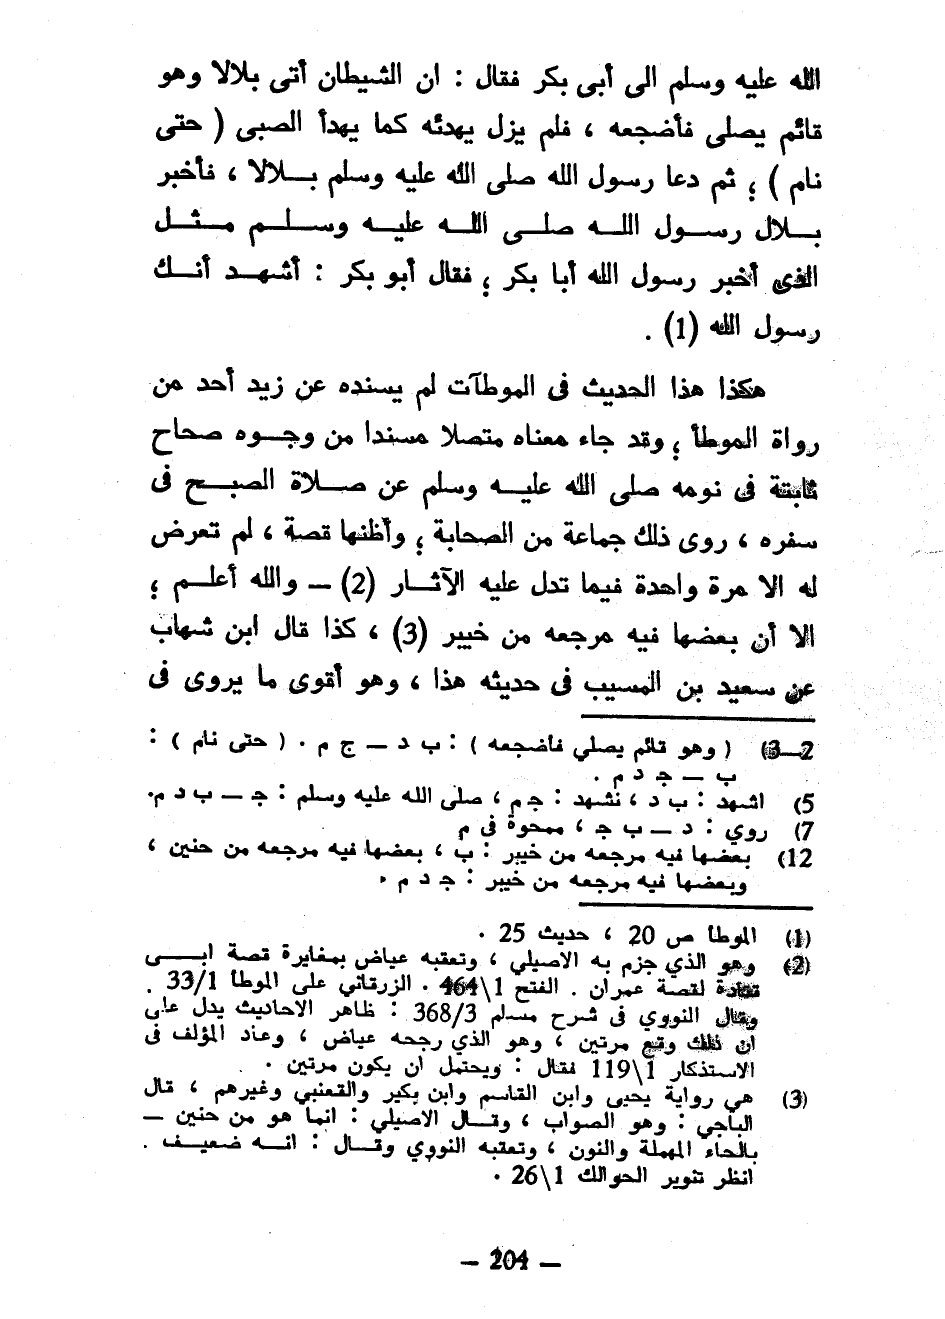 الله عليه وسلم الى أبى بكر فقال : ان الشيطان أتى بلالا وهو
قائم يصلى فأضجعه ، فلم يزل يهدئه كما يهدأ الصبى ( حتى
نام ) ؛ ثم دعا رسول الله صلى الله عليه وسلم بـــلالا ، فأخبر
بـــلال رســـول اللـــه صلـــى اللـــه عليـــه وســـلـــم مـــثـــل
الذى أخبر رسول الله أبا بكر ؛ فقال أبو بكر : أشهـــد أنـــك
رسول الله (1) .
هكذا هذا الحديث فى الموطآت لم يسنده عن زيد أحد من
رواة الموطأ ؛ وقد جاء معناه متصلا مسندا من وجـــوه صحاح
ثابتة فى نومه صلى الله عليـــه وسلم عن صـــلاة الصبـــح فى
سفره ، روى ذلك جماعة من الصحابة ؛ وأظنها قصة ، لم تعرض
له الا مرة واحدة فيما تدل عليه الآثـــار (2) ــ والله أعلـــم ؛
الا أن بعضها فيه مرجعه من خيبر (3) ، كذا قال ابن شهاب
عن سعيد بن المسيب فى حديثه هذا ، وهو أقوى ما يروى فى
2ــ3) ( وهو قائم يصلي فاضجعه ) : ب د ــ ج م . ( حتى نام ) :
ب ــ ج د م .
5) اشهد : ب د ، نشهد : ج م ، صلى الله عليه وسلم : ج ــ ب د م.
7) روي : د ــ ب ج ، ممحوة فى م
12) بعضها فيه مرجعه من خيبر : ب ، بعضها فيه مرجعه من حنين ،
وبعضها فيه مرجعه من خيبر : ج د م .
(1) الموطا ص 20 ، حديث 25 .
(2) وهو الذي جزم به الاصيلي ، وتعقبه عياض بمغايرة قصة ابـــى
قتادة لقصة عمران . الفتح 1\464 . الزرقاني على الموطا 33/1 .
وقال النووي فى شرح مسلم 368/3 : ظاهر الاحاديث يدل على
ان ذلك وقع مرتين ، وهو الذي رجحه عياض ، وعاد المؤلف فى
الاستذكار 1\119 فقال : ويحتمل ان يكون مرتين .
(3) هي رواية يحيى وابن القاسم وابن بكير والقعنبي وغيرهم ، قال
الباجي : وهو الصواب ، وقـــال الاصيلي : انما هو من حنين ــ
بالحاء المهملة والنون ، وتعقبه النووي وقـــال : انـــه ضعيـــف .
انظر تنوير الحوالك 1\26 .
ــ 204 ــ